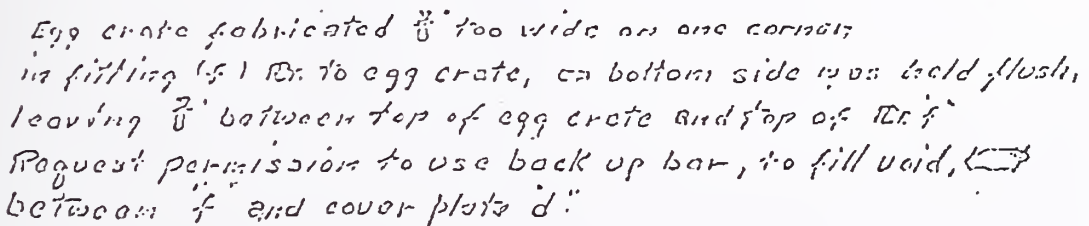 Egg crate fabricated too wide on one corner,
in fitting (f) Pr. to egg crate, on bottom side was held flush,
leaving between top of egg crate and top of Pr. f
Request permission to use back up bar, to fill void,
between f and cover plate "d."